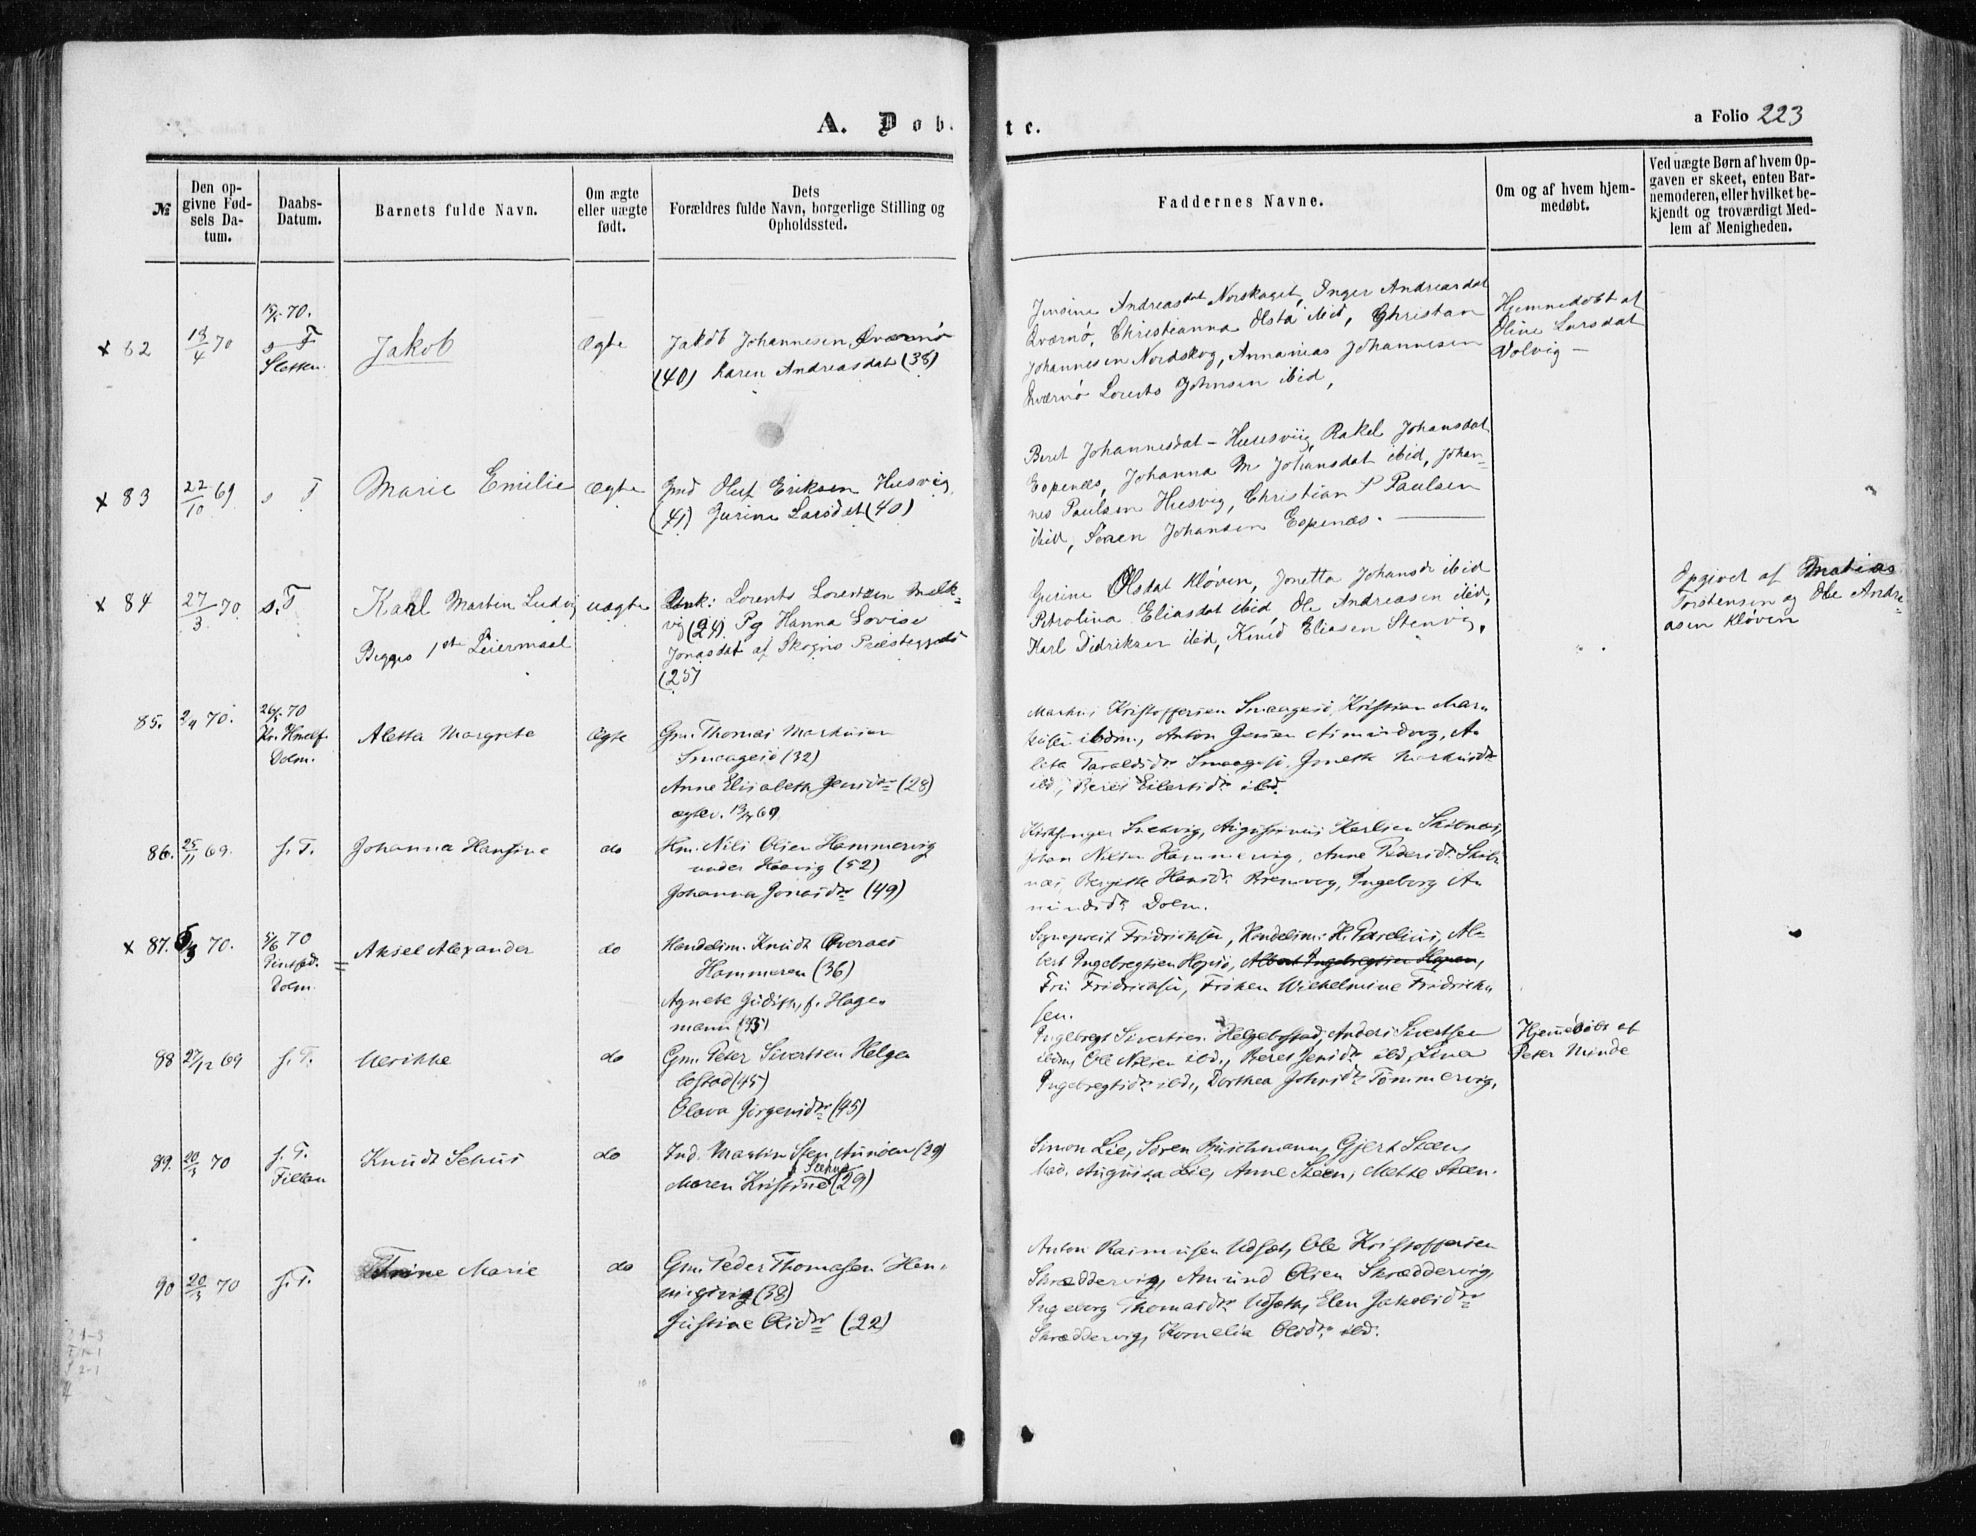 A. Døbte.
a Folio 223
№
Den opgivne Fødsels Datum.
Daabs-Datum.
Barnets fulde Navn.
Om ægte eller uægte født.
Dets Forældres fulde Navn, borgerlige Stilling og Opholdssted.
Faddernes Navne.
Om og af hvem hjemmedøbt.
Ved uægte Børn af hvem Opgaven er skeet, enten Barnemoderen, eller hvilket bekjendt og troværdigt Medlem af Menigheden.
x 82
13/4 70
70.
s T
Sletten
Jakob
Ægte
Jakob Johannesen Qværnø
(40) Karen Andreasdat (38)
Jensine Andreasdat Norskaget, Inger Andreasdat
Qværnø, Christianna Olsta ibid, Christan
Johannesen Nordskog, Annanias Johannesen
Qværnø Lorents Johnsen ibid,
Hjemmedøbt af
Oline Larsdat
Volvig –
x 83
22/10 69
s T
Marie Emilie
Ægte
Gmd Oluf Eriksen Husvig
(41) Gurine Larsdat (40)
Beret Johannesdat – Huusviig, Rakel Johansdat
Espenæs, Johanna M Johansdat ibid, Johan-
nes Paulsen Husvig, Christian P Paulsen
ibid, Søren Johansen Espenæs.
x 84
27/3 70
s. T
Karl Martin Ludvig
Begges 1ste Leiermaal
uægte
Unk: Lorents Lorentzen Melk-
vig (24) Pg Hanna Lovise
Jonasdat af Skogns Præstegjeld
(25)
Gurine Olsdat Kløven, Jonetta Johansd ibid
Petrolina Eliasdat ibid, Ole Andreasen ibid,
Karl Didriksen ibid, Knud Eliasen Stenvig,
Opgivet af Matias
Torstensen og Ole Andre-
asen Kløven
85.
2/4 70.
26/5 70
Kr. Himelf.
Dolm.
Aletta Margrete
Ægte
Gm. Thomas Markusen
Smaagesø (32)
Anne Elisabeth Jensdr (28)
ægtev. 69
Markus Kristoffersen Smaagesø, Kristian Mar-
kusen ibdm., Anton Jensen, A-
leta Taraldsdr Smaagesø, Jonetta Markusdr
ibd, Beret Eilertsdr ibd.
86.
25/11 69.
s. T.
Johanna Hansine
do
Hm. Nils Olsen Hammervig
under Havig (52)
Johanna Jonasdr (49)
Kirksanger Snekvig, Augustinus Karlsen Skibnæs,
Johan Nilsen Hammervig, Anne Pedersdr. Skib-
næs, Bergitte Hansdr. Bremvog, Ingeborg A-
mundsdr. Dolm.
x 87.
70.
5/6 70
Pintsed.
Dolm
Aksel Alexander
do
Handelsm. Knudt Overaas
Hammeren (36)
Agnete Judith, f. Hage-
mann (35)
Sognepræst Fridrichsen, Handelsm: H. Parelius, Al-
bert Ingebregtsen Hopsø, Albert Ingebregtsen Hopen,
Fru Fridrichsen, Frøken Wilhelmine Fridrich-
sen.
88
27/12 69
s. T.
Ulrikke
do
Gm. Peter Sivertsen Helge-
bostad (45)
Olava Jørgensdr (45)
Ingebregt Sivertsen Helgebostad, Anders Sivertsen
ibdm, Ole Nilsen ibd., Beret Jensdr. ibd, Lina
Ingebregtsdr. ibd., Dorthea Johnsdr Tømmervig,
Hjemedøbt af
Peter Minde
89.
20/3 70
s. T.
Fillan
Knudt Sehus
do
Ind. Martin Steen Aunøen (29)
f. Seehus
Maren Kristine (29)
Simon Lie, Søren Buschmann, Gjert Steen,
Mad. Augusta Lie, Anne Steen, Mette Steen.
90
20/3 70
s. T.
Trine Marie
do
Gm. Peder Thomasen Hen-
ningsvig (38)
Justine Olsdr (22)
Anton Rasmussen Udsæt, Ole Kristoffersen
Skræddervig, Amund Olsen Skræddervig,
Ingeborg Thomasdr. Udsæt, Elen Jakobsdr
Skræddervig, Kornelia Olsdr. ibd.